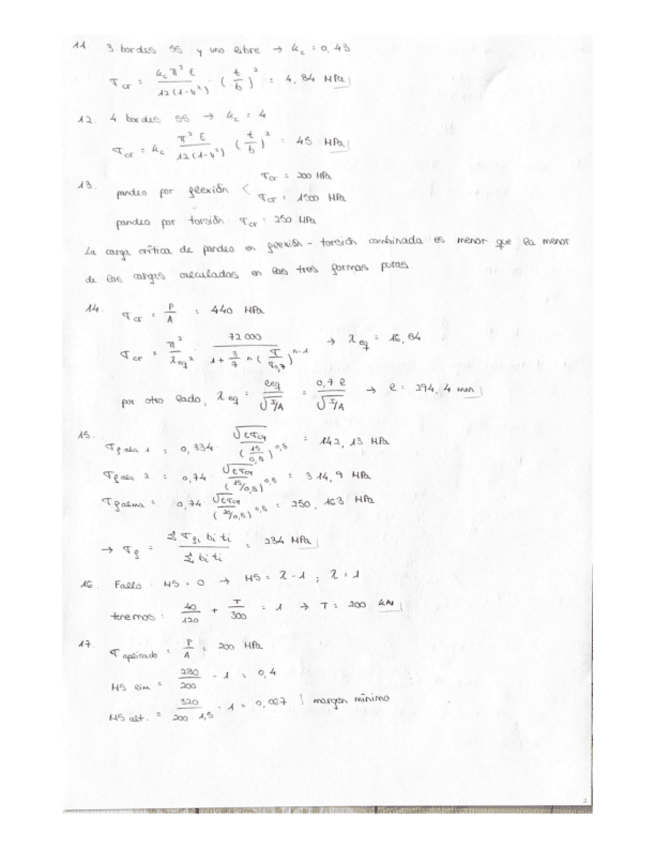 11. 3 bordes SS y uno libre → kc = 0,43
σcr = kc π² E / 12(1-ν²) · (t/b)² = 4,84 MPa
12. 4 bordes SS → kc = 4
σcr = kc π² E / 12(1-ν²) · (t/b)² = 45 MPa
13. pandeo por flexión < σcr = 200 MPa
σcr = 1500 MPa
pandeo por torsión σcr = 250 MPa
La carga crítica de pandeo en flexión - torsión combinada es menor que la menor
de las cargas calculadas en las tres formas puras.
14. σcr = P/A = 440 MPa
σcr = π²/λeq² · 72000 / 1 + 3/7 n (σ/σ0,7)^n-1 → λeq = 16,84
por otro lado, λeq = leq/√I/A = 0,7 l/√I/A → l = 294,4 mm
15. σf ala 1 = 0,334 · √Eσcy / (15/0,5)^0,5 = 142,13 MPa
σf ala 2 = 0,74 · √Eσcy / (25/0,5)^0,5 = 314,9 MPa
σf alma = 0,74 √Eσcy / (20/0,5)^0,5 = 250,163 MPa
→ σf = Σ σfi bi ti / Σ bi ti = 234 MPa
16. Fallo MS = 0 → MS = λ - 1 ; λ = 1
tenemos: 40/120 + T/300 = 1 → T = 200 kN
17. σaplicado = P/A = 200 MPa
MS lim = 280/200 - 1 = 0,4
MS alt. = 320/200·1,5 - 1 = 0,067 | margen mínimo
2